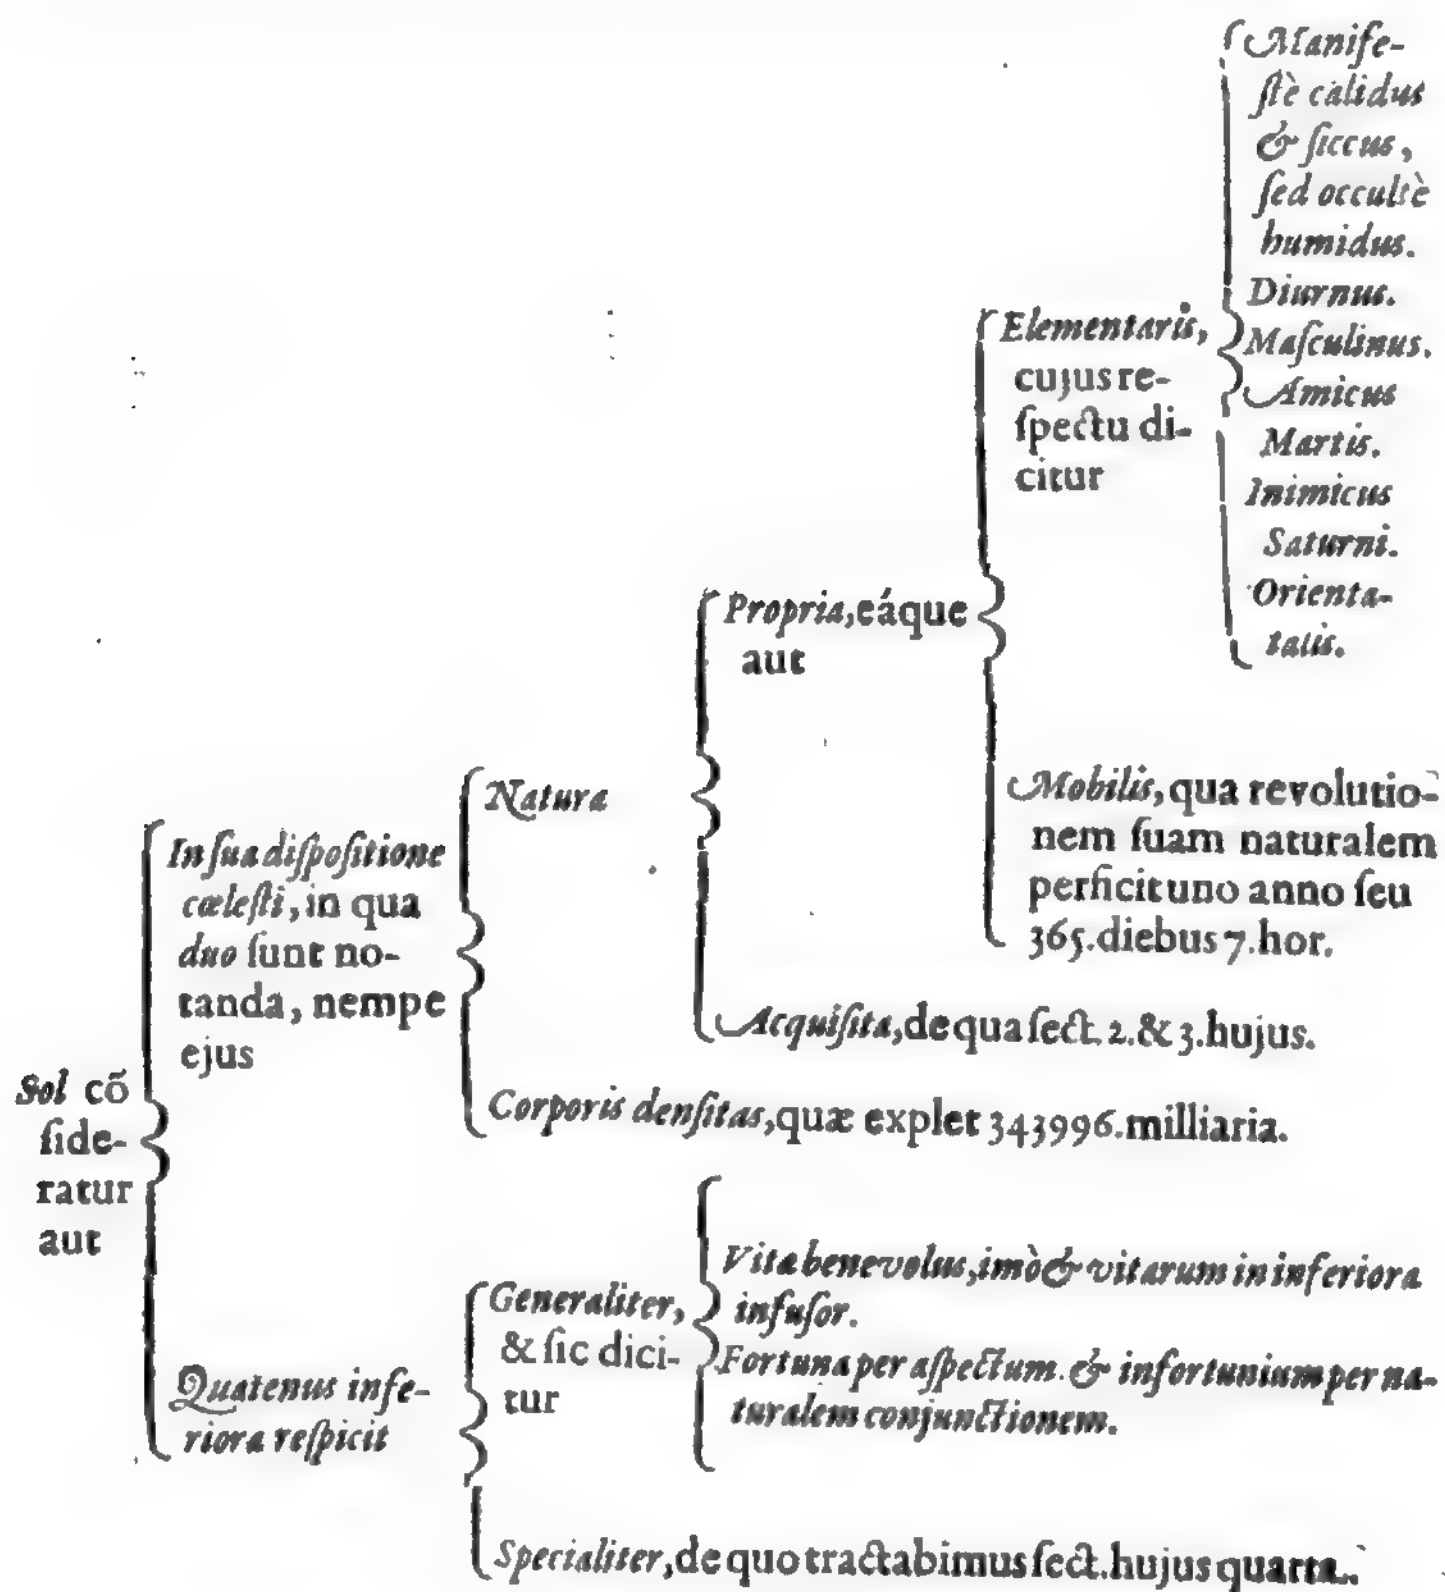 Sol cõ
ſide-
ratur
aut
In ſua diſpoſitione
cæleſti, in qua
duo ſunt no-
tanda, nempe
ejus
Natura
Propria, eáque
aut
Elementaris,
cujus re-
ſpectu di-
citur
Manife-
ſtè calidus
& ſiccus,
ſed occultè
humidus.
Diurnus.
Maſculinus.
Amicus
Martis.
Inimicus
Saturni.
Orienta-
talis.
Mobilis, qua revolutio-
nem ſuam naturalem
perficit uno anno ſeu
365. diebus 7. hor.
Acquiſita, de qua ſect. 2. & 3. hujus.
Corporis denſitas, quæ explet 343996. milliaria.
Quatenus infe-
riora reſpicit
Generaliter,
& ſic dici-
tur
Vitæ benevolus, imò & vitarum in inferiora
infuſor.
Fortuna per aſpectum. & infortunium per na-
turalem conjunctionem.
Specialiter, de quo tractabimus ſect. hujus quarta.